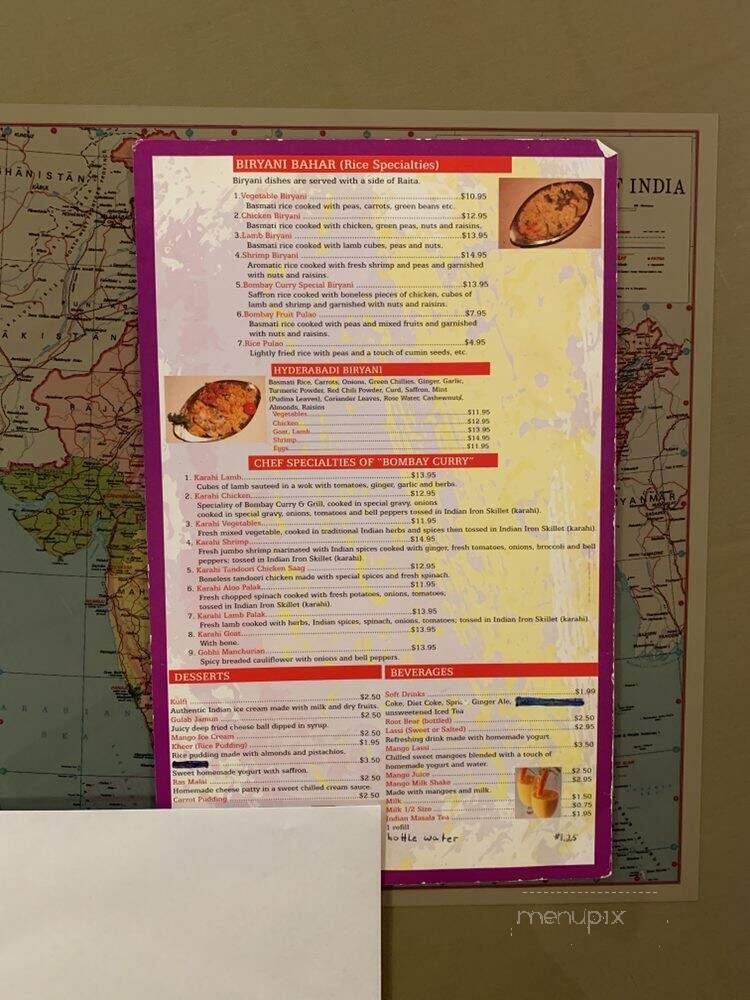 BIRYANI BAHAR (Rice Specialties)
Biryani dishes are served with a side of Raita.
1.Vegetable Biryani $10.95
Basmati rice cooked with peas, carrots, green beans etc.
2.Chicken Biryani $12.95
Basmati rice cooked with chicken, green peas, nuts and raisins.
3.Lamb Biryani $13.95
Basmati rice cooked with lamb cubes, peas and nuts.
4.Shrimp Biryani $14.95
Aromatic rice cooked with fresh shrimp and peas and garnished
with nuts and raisins.
5.Bombay Curry Special Biryani $13.95
Saffron rice cooked with boneless pieces of chicken, cubes of
lamb and shrimp and garnished with nuts and raisins.
6.Bombay Fruit Pulao $7.95
Basmati rice cooked with peas and mixed fruits and garnished
with nuts and raisins.
7.Rice Pulao $4.95
Lightly fried rice with peas and a touch of cumin seeds, etc.
HYDERABADI BIRYANI
Basmati Rice, Carrots, Onions, Green Chillies, Ginger, Garlic,
Turmeric Powder, Red Chili Powder, Curd, Saffron, Mint
(Pudina Leaves), Coriander Leaves, Rose Water, Cashewnuts,
Almonds, Raisins
Vegetables $11.95
Chicken $12.95
Goat, Lamb $13.95
Shrimp $14.95
Eggs $11.95
CHEF SPECIALTIES OF "BOMBAY CURRY"
1. Karahi Lamb $13.95
Cubes of lamb sauteed in a wok with tomatoes, ginger, garlic and herbs.
2. Karahi Chicken $12.95
Speciality of Bombay Curry & Grill, cooked in special gravy, onions
cooked in special gravy, onions, tomatoes and bell peppers tossed in Indian Iron Skillet (karahi).
3. Karahi Vegetables $11.95
Fresh mixed vegetable, cooked in traditional Indian herbs and spices then tossed in Indian Iron Skillet (karahi).
4. Karahi Shrimp $14.95
Fresh jumbo shrimp marinated with Indian spices cooked with ginger, fresh tomatoes, onions, broccoli and bell
peppers; tossed in Indian Iron Skillet (karahi).
5. Karahi Tandoori Chicken Saag $12.95
Boneless tandoori chicken made with special spices and fresh spinach.
6. Karahi Aloo Palak $11.95
Fresh chopped spinach cooked with fresh potatoes, onions, tomatoes;
tossed in Indian Iron Skillet (karahi).
7. Karahi Lamb Palak $13.95
Fresh lamb cooked with herbs, Indian spices, spinach, onions, tomatoes; tossed in Indian Iron Skillet (karahi).
8. Karahi Goat $13.95
With bone.
9. Gobhi Manchurian $13.95
Spicy breaded cauliflower with onions and bell peppers.
DESSERTS
Kulfi $2.50
Authentic Indian ice cream made with milk and dry fruits.
Gulab Jamun $2.50
Juicy deep fried cheese ball dipped in syrup.
Mango Ice Cream $2.50
Kheer (Rice Pudding) $1.95
Rice pudding made with almonds and pistachios.
$3.50
Sweet homemade yogurt with saffron.
Ras Malai $2.50
Homemade cheese patty in a sweet chilled cream sauce.
Carrot Pudding $2.50
BEVERAGES
Soft Drinks $1.99
Coke, Diet Coke, Spri Ginger Ale,
unsweetened Iced Tea
Root Bear (bottled) $2.50
Lassi (Sweet or Salted) $2.95
Refreshing drink made with homemade yogurt.
Mango Lassi $3.50
Chilled sweet mangoes blended with a touch of
homemade yogurt and water.
Mango Juice $2.50
Mango Milk Shake $2.95
Made with mangoes and milk.
Milk $1.50
Milk 1/2 Size $0.75
Indian Masala Tea $1.95
1 refill
bottle water $1.25
F INDIA
HANISTAN
MYANMAR
menupix